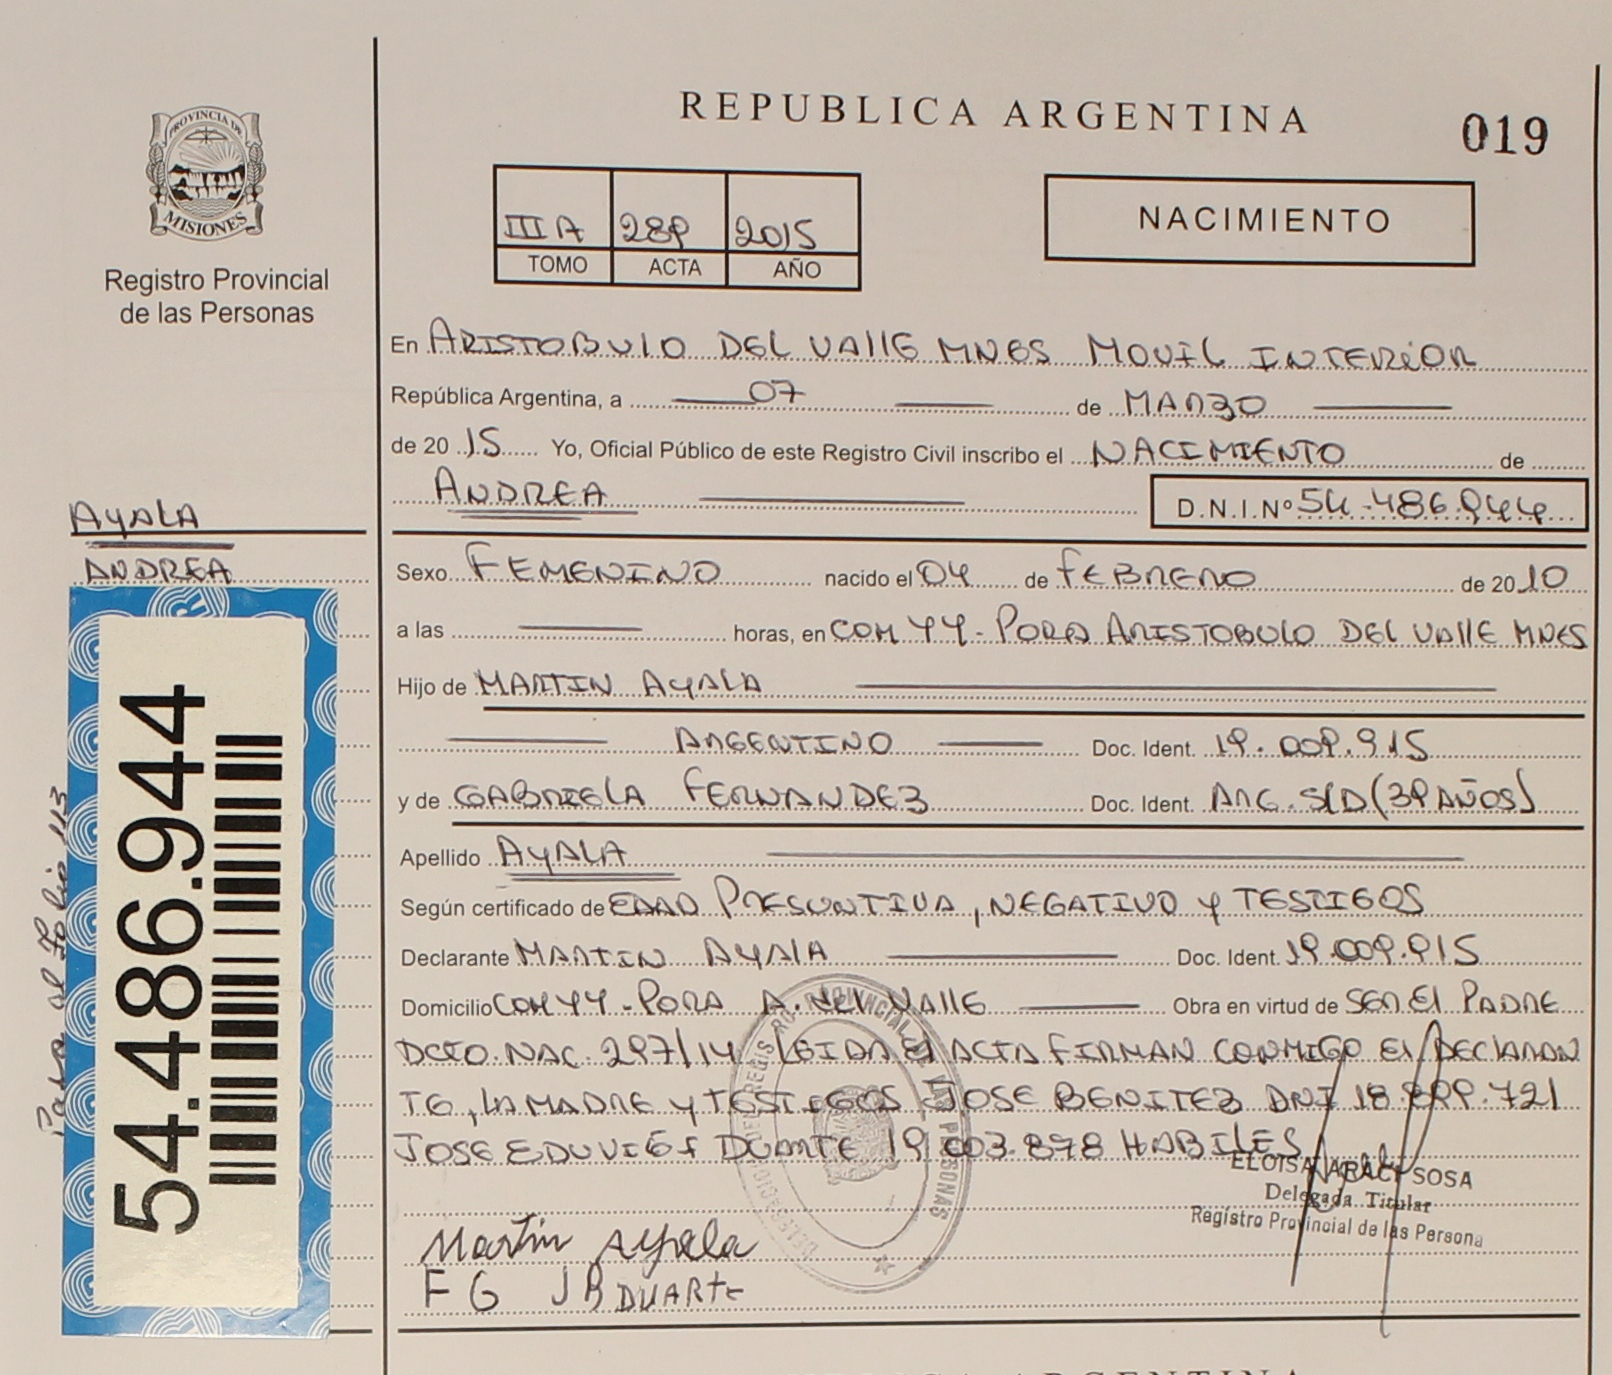 REPUBLICA ARGENTINA
019
PROVINCIA DE
MISIONES
Registro Provincial
de las Personas
III A 289 2015
TOMO ACTA AÑO
NACIMIENTO
En ARISTOBULO DEL VALLE MNES MOVIL INTERIOR
República Argentina, a 07 de MARZO
de 2015 Yo, Oficial Público de este Registro Civil inscribo el NACIMIENTO de
ANDREA
D.N.I.Nº 54.486.944
AYALA
ANDREA
Sexo FEMENINO nacido el 04 de FEBRERO de 2010
a las horas, en COM YY-PORA ARISTOBULO DEL VALLE MNES
Hijo de MARTIN AYALA
ARGENTINO Doc. Ident. 19.009.915
y de GABRIELA FERNANDEZ Doc. Ident. ARG. S/D (39 AÑOS)
Apellido AYALA
Según certificado de EDAD PRESUNTIVA, NEGATIVO Y TESTIGOS
Declarante MARTIN AYALA Doc. Ident. 19.009.915
Domicilio COM YY-PORA A. DEL VALLE Obra en virtud de SER EL PADRE
DCTO. NAC. 297/14 LEIDA EL ACTA FIRMAN CONMIGO EL DECLARAN
TE, LA MADRE Y TESTIGOS JOSE BENITEZ DNI 18.899.721
JOSE EDUVIGES DUARTE 19.003.898 HABILES
ELOISA ARACI SOSA
Delegada Titular
Registro Provincial de las Persona
Martin Ayala
F G J B DUARTE
54.486.944
Pasa al Folio 113